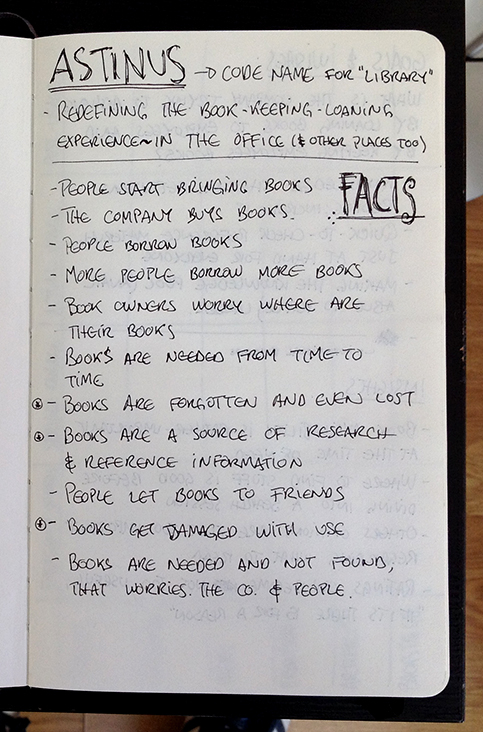 ASTINUS → CODE NAME FOR "LIBRARY"
- REDEFINING THE BOOK-KEEPING-LOANING
EXPERIENCE~IN THE OFFICE (& OTHER PLACES TOO)
FACTS
- PEOPLE START BRINGING BOOKS
- THE COMPANY BUYS BOOKS.
- PEOPLE BORROW BOOKS
- MORE PEOPLE BORROW MORE BOOKS
- BOOK OWNERS WORRY WHERE ARE
THEIR BOOKS
- BOOKS ARE NEEDED FROM TIME TO
TIME
- BOOKS ARE FORGOTTEN AND EVEN LOST
- BOOKS ARE A SOURCE OF RESEARCH
& REFERENCE INFORMATION
- PEOPLE LET BOOKS TO FRIENDS
- BOOKS GET DAMAGED WITH USE
- BOOKS ARE NEEDED AND NOT FOUND,
THAT WORRIES. THE CO. & PEOPLE.